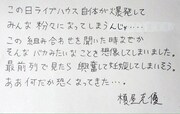 この日ライブハウス自体が爆発して
みんな粉々になってしまうんじゃ…
この組み合わせを聞いた時まさか
そんなバカみたいなことを想像してしまいました。
最前列で見たら興奮して妊娠してしまいそう。
ああ何だか恐くなってきた…。